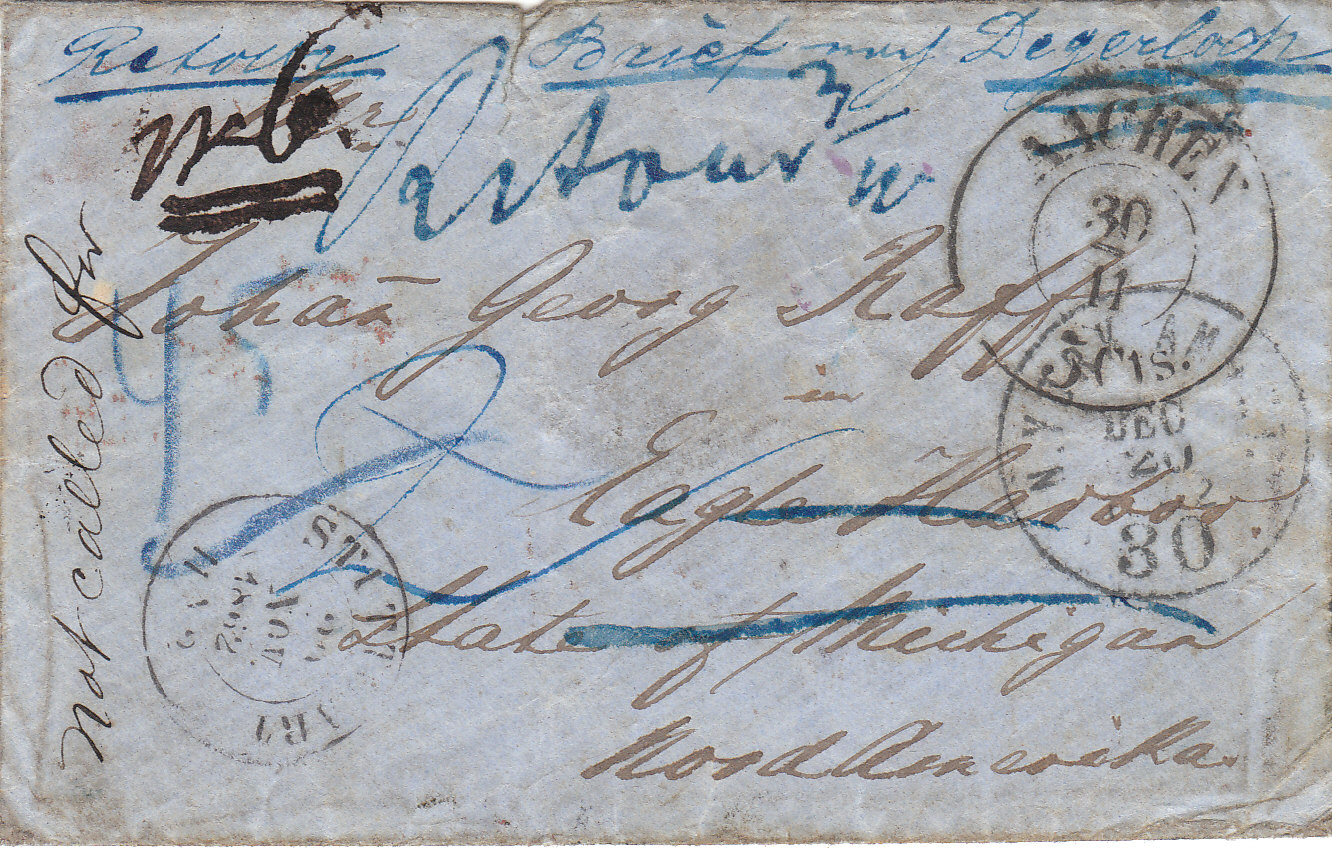 Retour Brief nach Degerloch
No 6.
Retour
3/11
Johañ Georg Raff
in
Eagle Harbor.
State of Michigan
Nord Amerika.
not called for
45
AACHEN
30
11
3 CTS.
N.Y. AM
DEC
20
30
STUTTGART
NOV